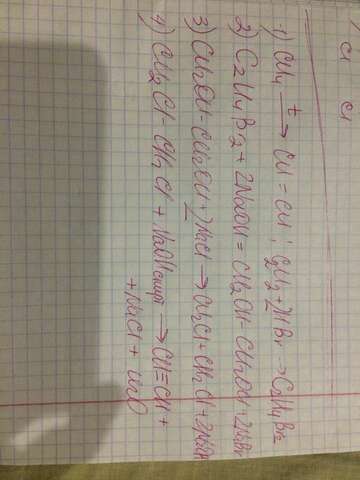 Cl Cl
1) CH4 t→ CH = CH ; C2H2 + 2HBr → C2H4Br2
2) C2H4Br2 + 2NaOH = CH2OH - CH2OH + 2NaBr
3) CH2OH - CH2OH + 2NaCl → CH2Cl + CH2Cl + 2NaOH
4) CH2Cl - CH2Cl + NaOH спирт → CH≡CH +
+ NaCl + H2O